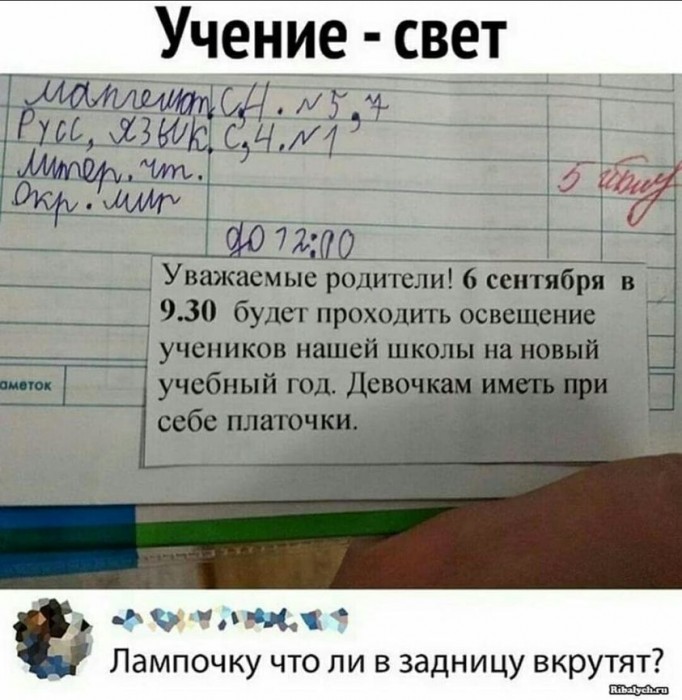 Учение - свет
математ. С,4. №5,7
Русс, язык. С,4.№1
Литер. чт.
Окр. мир
5
до 12:00
Уважаемые родители! 6 сентября в
9.30 будет проходить освещение
учеников нашей школы на новый
учебный год. Девочкам иметь при
себе платочки.
аметок
Лампочку что ли в задницу вкрутят?
Ribalych.ru